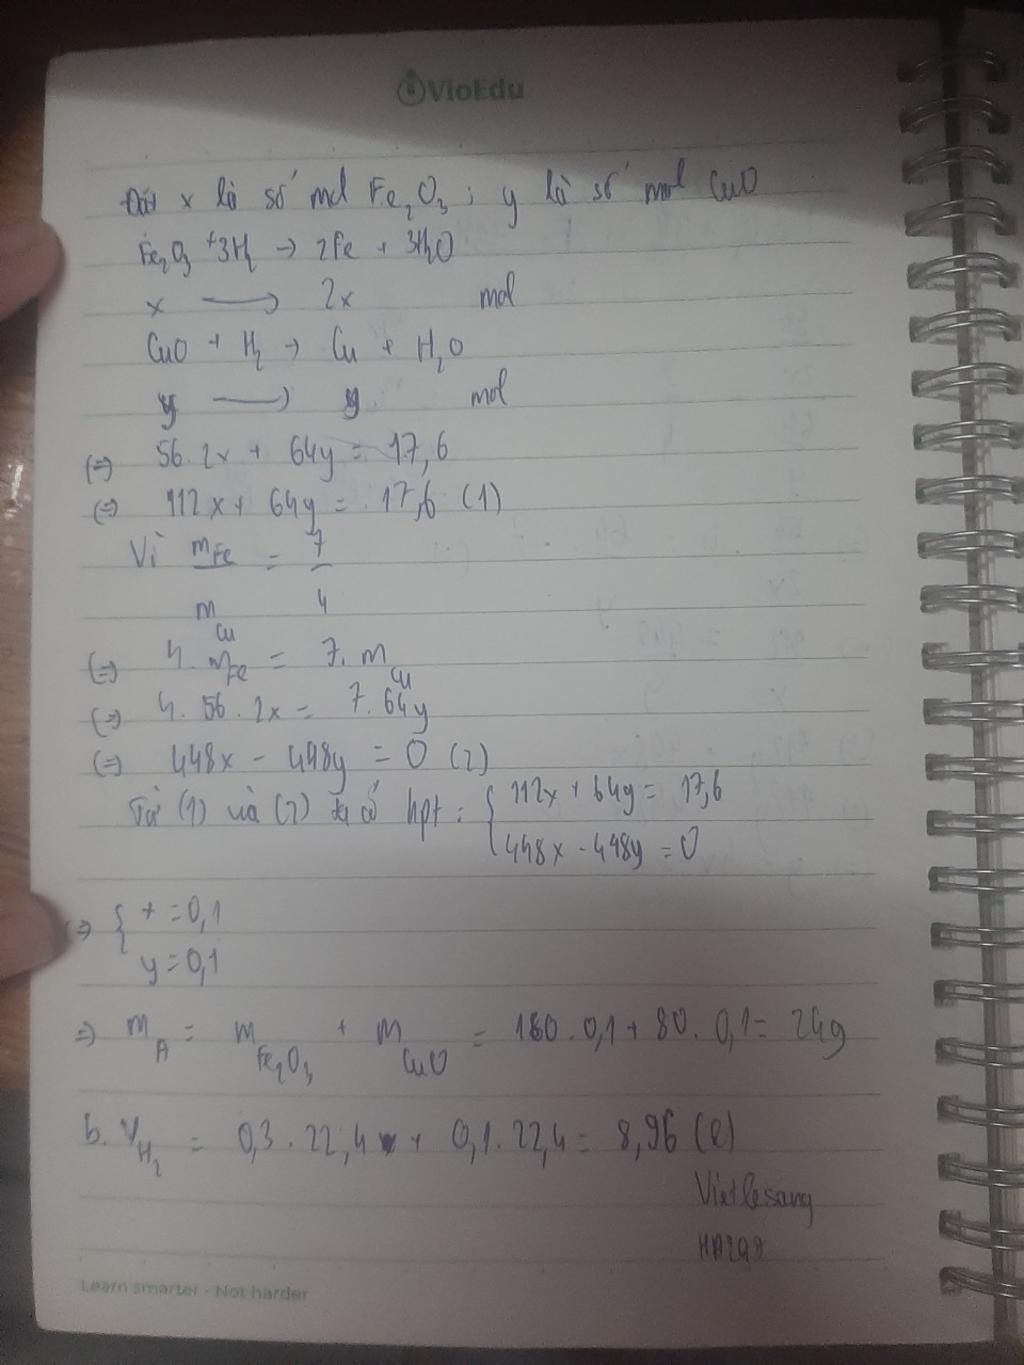 VioEdu
Đặt x là số mol Fe₂O₃; y là số mol CuO
Fe₂O₃ + 3H₂ → 2Fe + 3H₂O
x → 2x mol
CuO + H₂ → Cu + H₂O
y → y mol
(=) 56.2x + 64y = 17,6
(=) 112x + 64y = 17,6 (1)
Vì m_Fe / m_Cu = 7 / 4
(=) 4. m_Fe = 7. m_Cu
(=) 4. 56. 2x = 7. 64y
(=) 448x - 448y = 0 (2)
Từ (1) và (2) ta có hpt: { 112x + 64y = 17,6
448x - 448y = 0
(=) { x = 0,1
y = 0,1
=) m_A = m_Fe₂O₃ + m_CuO = 160. 0,1 + 80. 0,1 = 24g
b. V_H₂ = 0,3. 22,4 + 0,1. 22,4 = 8,96 (l)
Vietlesang
Learn smarter - Not harder